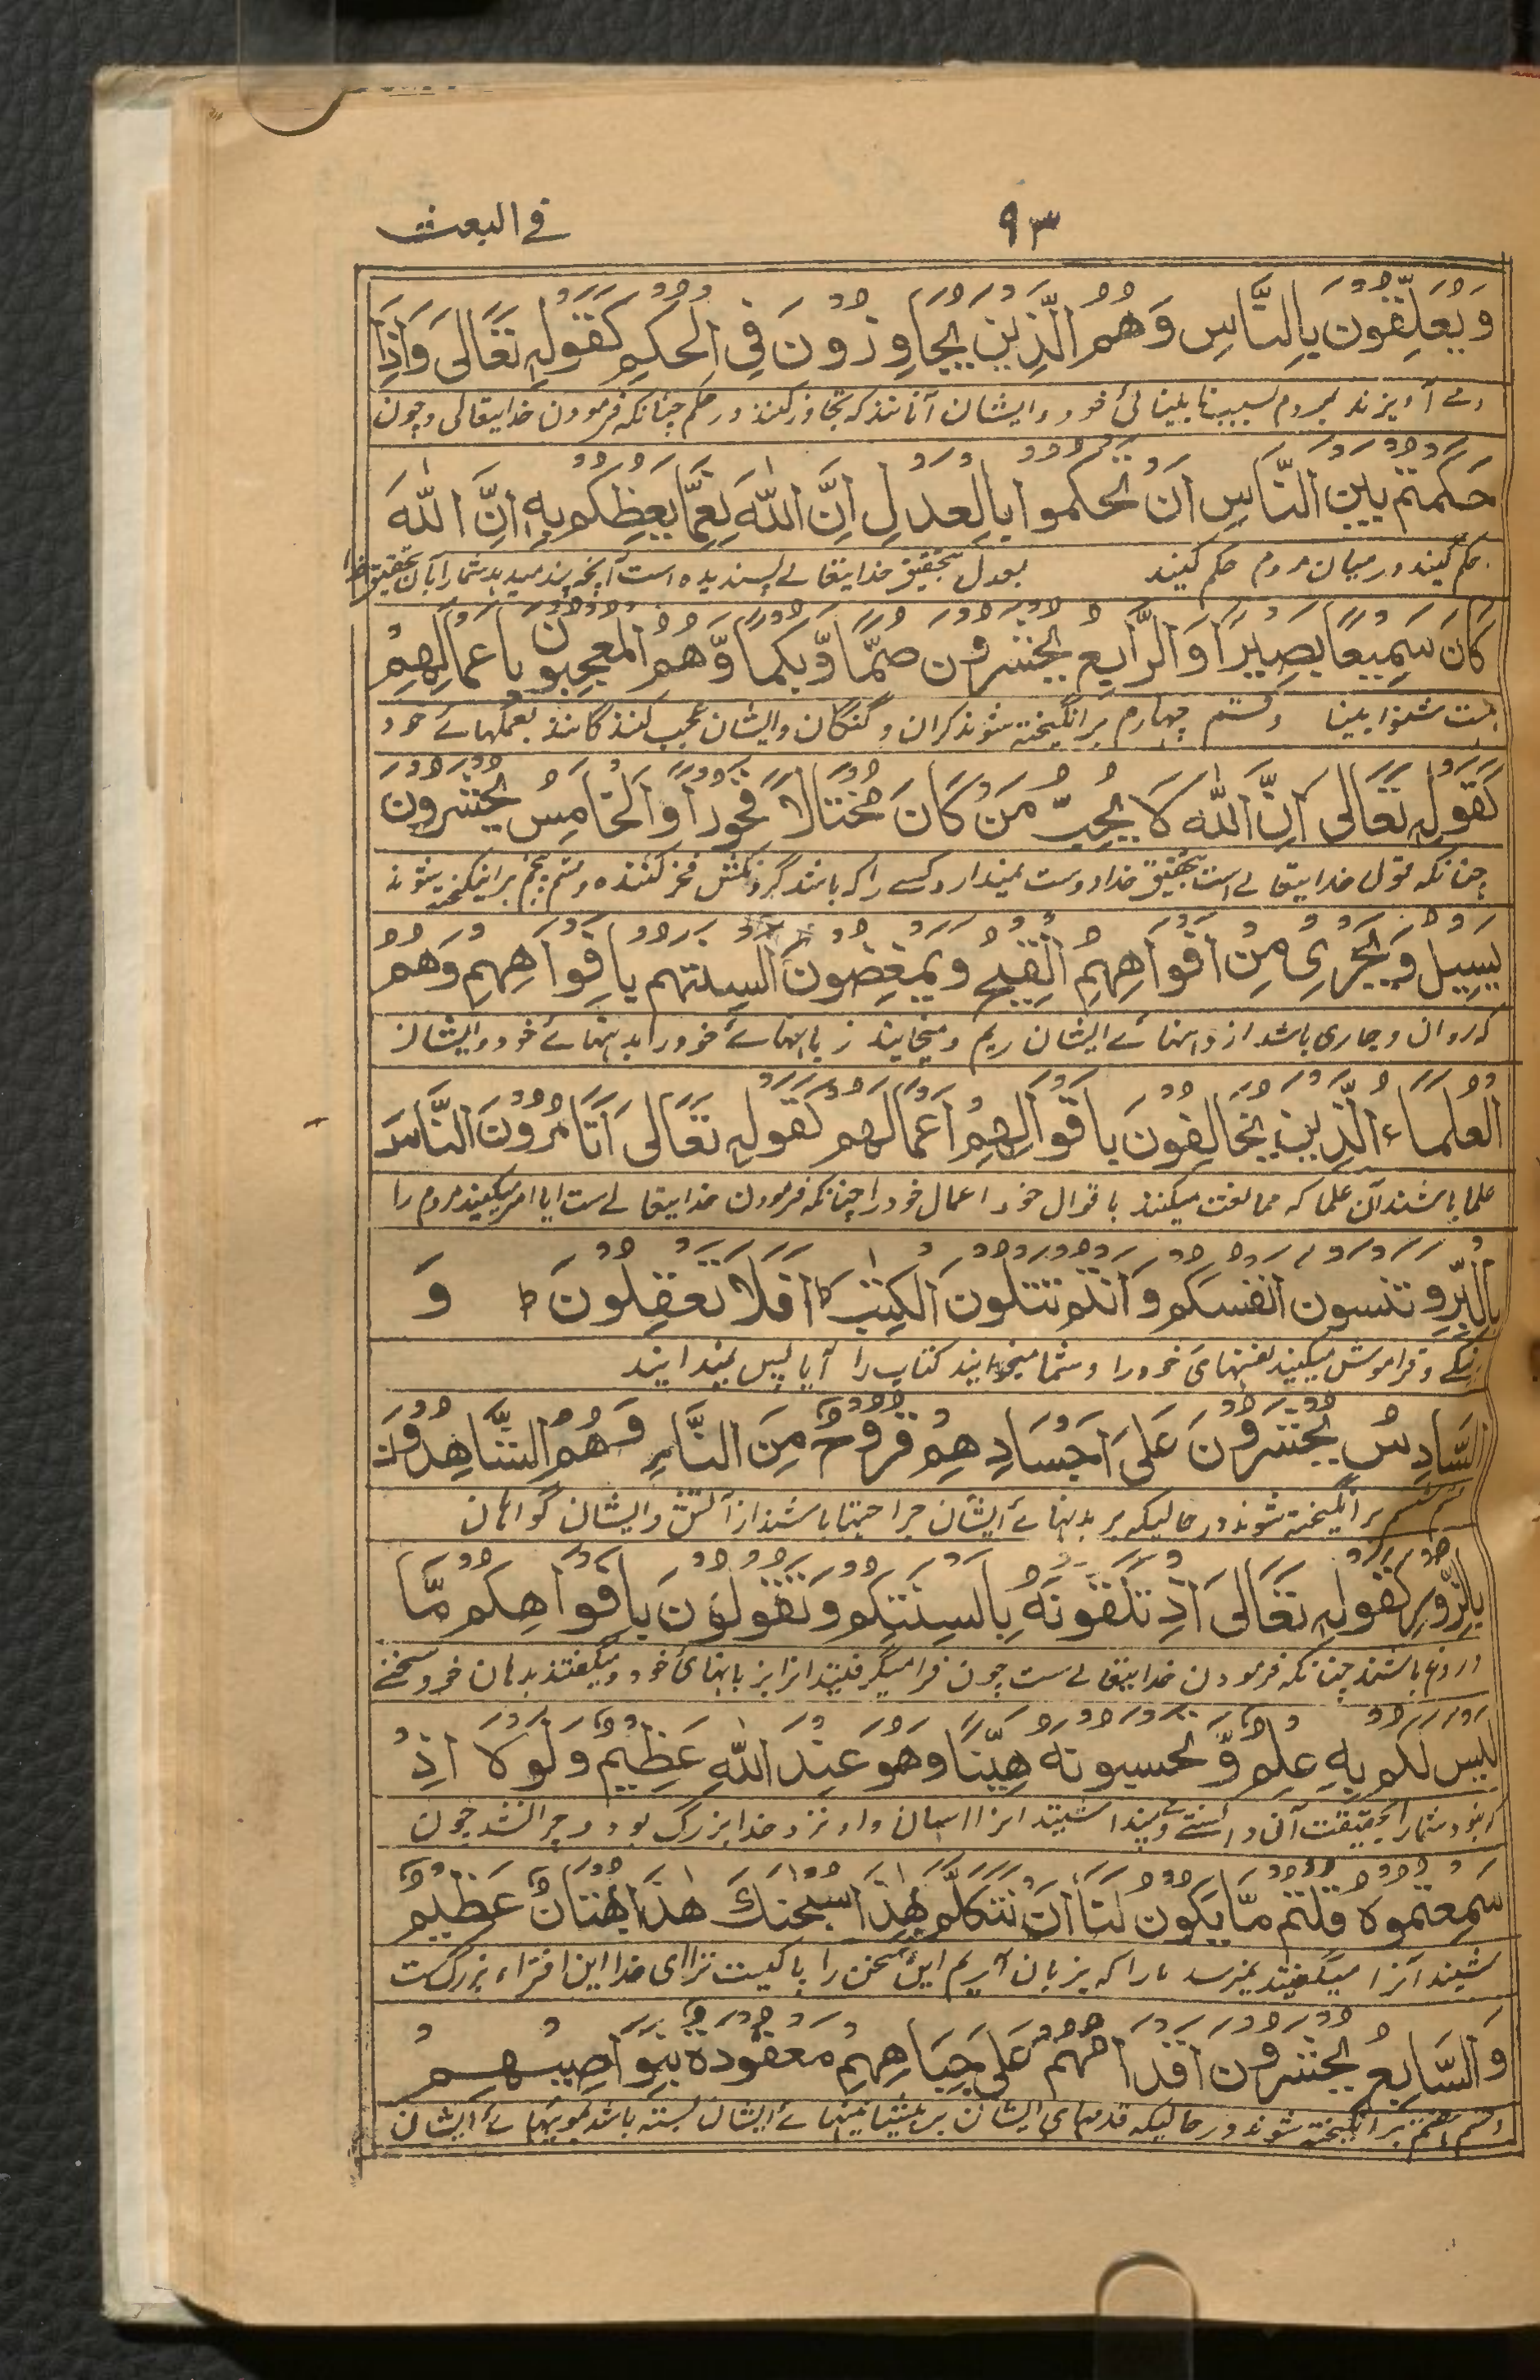 ٩٣
في البعث
وَيَعَلِّقُونَ بِالنَّاسِ وَهُمُ الَّذِيْنَ يُجَاوِزُوْنَ فِي الْحُكْمِ كَقَوْلِهٖ تَعَالٰى وَاِذَا
وے آویزند بمردم بسبب نابینائی خود وایشان آنانند که تجاوز کنند در حکم چنانکه فرمودن خدایتعالی وچون
حَكَمْتُمْ بَيْنَ النَّاسِ اَنْ تَحْكُمُوْا بِالْعَدْلِ اِنَّ اللّٰهَ نِعِمَّا يَعِظُكُمْ بِهٖ اِنَّ اللّٰهَ
حکم کنید درمیان مردم حکم کنید بعدل بتحقیق خدایتعالے پسندیده است آنچه پند میدهد شمارا بآن بتحقیق خدا
كَانَ سَمِيْعًا بَصِيْرًا وَالرَّابِعُ يُحْشَرُوْنَ صُمًّا وَّبُكْمًا وَّهُمُ الْمُعْجِبُوْنَ بِاَعْمَالِهِمْ
هست شنوا بینا وقسم چهارم برانگیخته شوند کران وگنگان وایشان عجب کنندگانند بعملهائے خود
كَقَوْلِهٖ تَعَالٰى اِنَّ اللّٰهَ لَا يُحِبُّ مَنْ كَانَ مُخْتَالًا فَخُوْرًا وَالْخَامِسُ يُحْشَرُوْنَ
چنانکه قول خدایتعالے است بتحقیق خدا دوست نمیدارد کسے را که باشد گردنکش فخر کننده وقسم پنجم برانیگخته شوند
يَسِيْلُ وَيَجْرِيْ مِنْ اَفْوَاهِهِمُ الْقَيْحُ وَيَمْضَغُوْنَ اَلْسِنَتَهُمْ بِاَفْوَاهِهِمْ وَهُمُ
که روان وجاری باشد از دهنهائے ایشان ریم ومیخایند زبانهائے خود را بدهنهائے خود وایشان
الْعُلَمَاءُ الَّذِيْنَ يُخَالِفُوْنَ بِاَقْوَالِهِمْ اَعْمَالَهُمْ كَقَوْلِهٖ تَعَالٰى اَتَأْمُرُوْنَ النَّاسَ
علما باشند آن علما که مخالفت میکنند باقوال خود اعمال خود را چنانکه فرمودن خدایتعالے است ایا امر میکنید مردم را
بِالْبِرِّ وَتَنْسَوْنَ اَنْفُسَكُمْ وَاَنْتُمْ تَتْلُوْنَ الْكِتٰبَ ط اَفَلَا تَعْقِلُوْنَ ط وَ
نیکے وفراموش میکنید نفسهای خود را وشما میخوانید کتاب را آیا پس نمیدانید
السَّادِسُ يُحْشَرُوْنَ عَلٰى اَجْسَادِهِمْ قُرُوْحٌ مِّنَ النَّارِ وَهُمُ الشَّاهِدُوْنَ
ششم برانگیخته شوند در حالیکه بر بدنهائے ایشان جراحتها باشند از آتش وایشان گواهان
بِالزُّوْرِ كَقَوْلِهٖ تَعَالٰى اِذْ تَلَقَّوْنَهٗ بِاَلْسِنَتِكُمْ وَتَقُوْلُوْنَ بِاَفْوَاهِكُمْ مَّا
دروغ باشند چنانکه فرمودن خدایتعالے ست چون فرا میگرفتید انرا بزبانهائ خود ومیگفتند بدهان خود سخنے
لَيْسَ لَكُمْ بِهٖ عِلْمٌ وَّتَحْسَبُوْنَهٗ هَيِّنًا وَهُوَ عِنْدَ اللّٰهِ عَظِيْمٌ وَلَوْلَا اِذْ
که نبود شمارا بحقیقت آن دانستے ومیپنداشتید انرا اسان واو نزد خدا بزرگ بود وچرا نشد چون
سَمِعْتُمُوْهُ قُلْتُمْ مَّا يَكُوْنُ لَنَا اَنْ نَّتَكَلَّمَ بِهٰذَا سُبْحٰنَكَ هٰذَا بُهْتَانٌ عَظِيْمٌ
شنیدند آنرا میگفتند نمیرسد مارا که بزبان آریم این سخن را پاکیست ترا ای خدا این افتراء بزرگست
وَالسَّابِعُ يُحْشَرُوْنَ اَقْدَامُهُمْ عَلٰى جِبَاهِهِمْ مَعْقُوْدَةٌ بِنَوَاصِيْهِمْ
وقسم هفتم برانگیخته شوند در حالیکه قدمهای ایشان بر پیشانیهائے ایشان بسته باشد بمویهائے ایشان